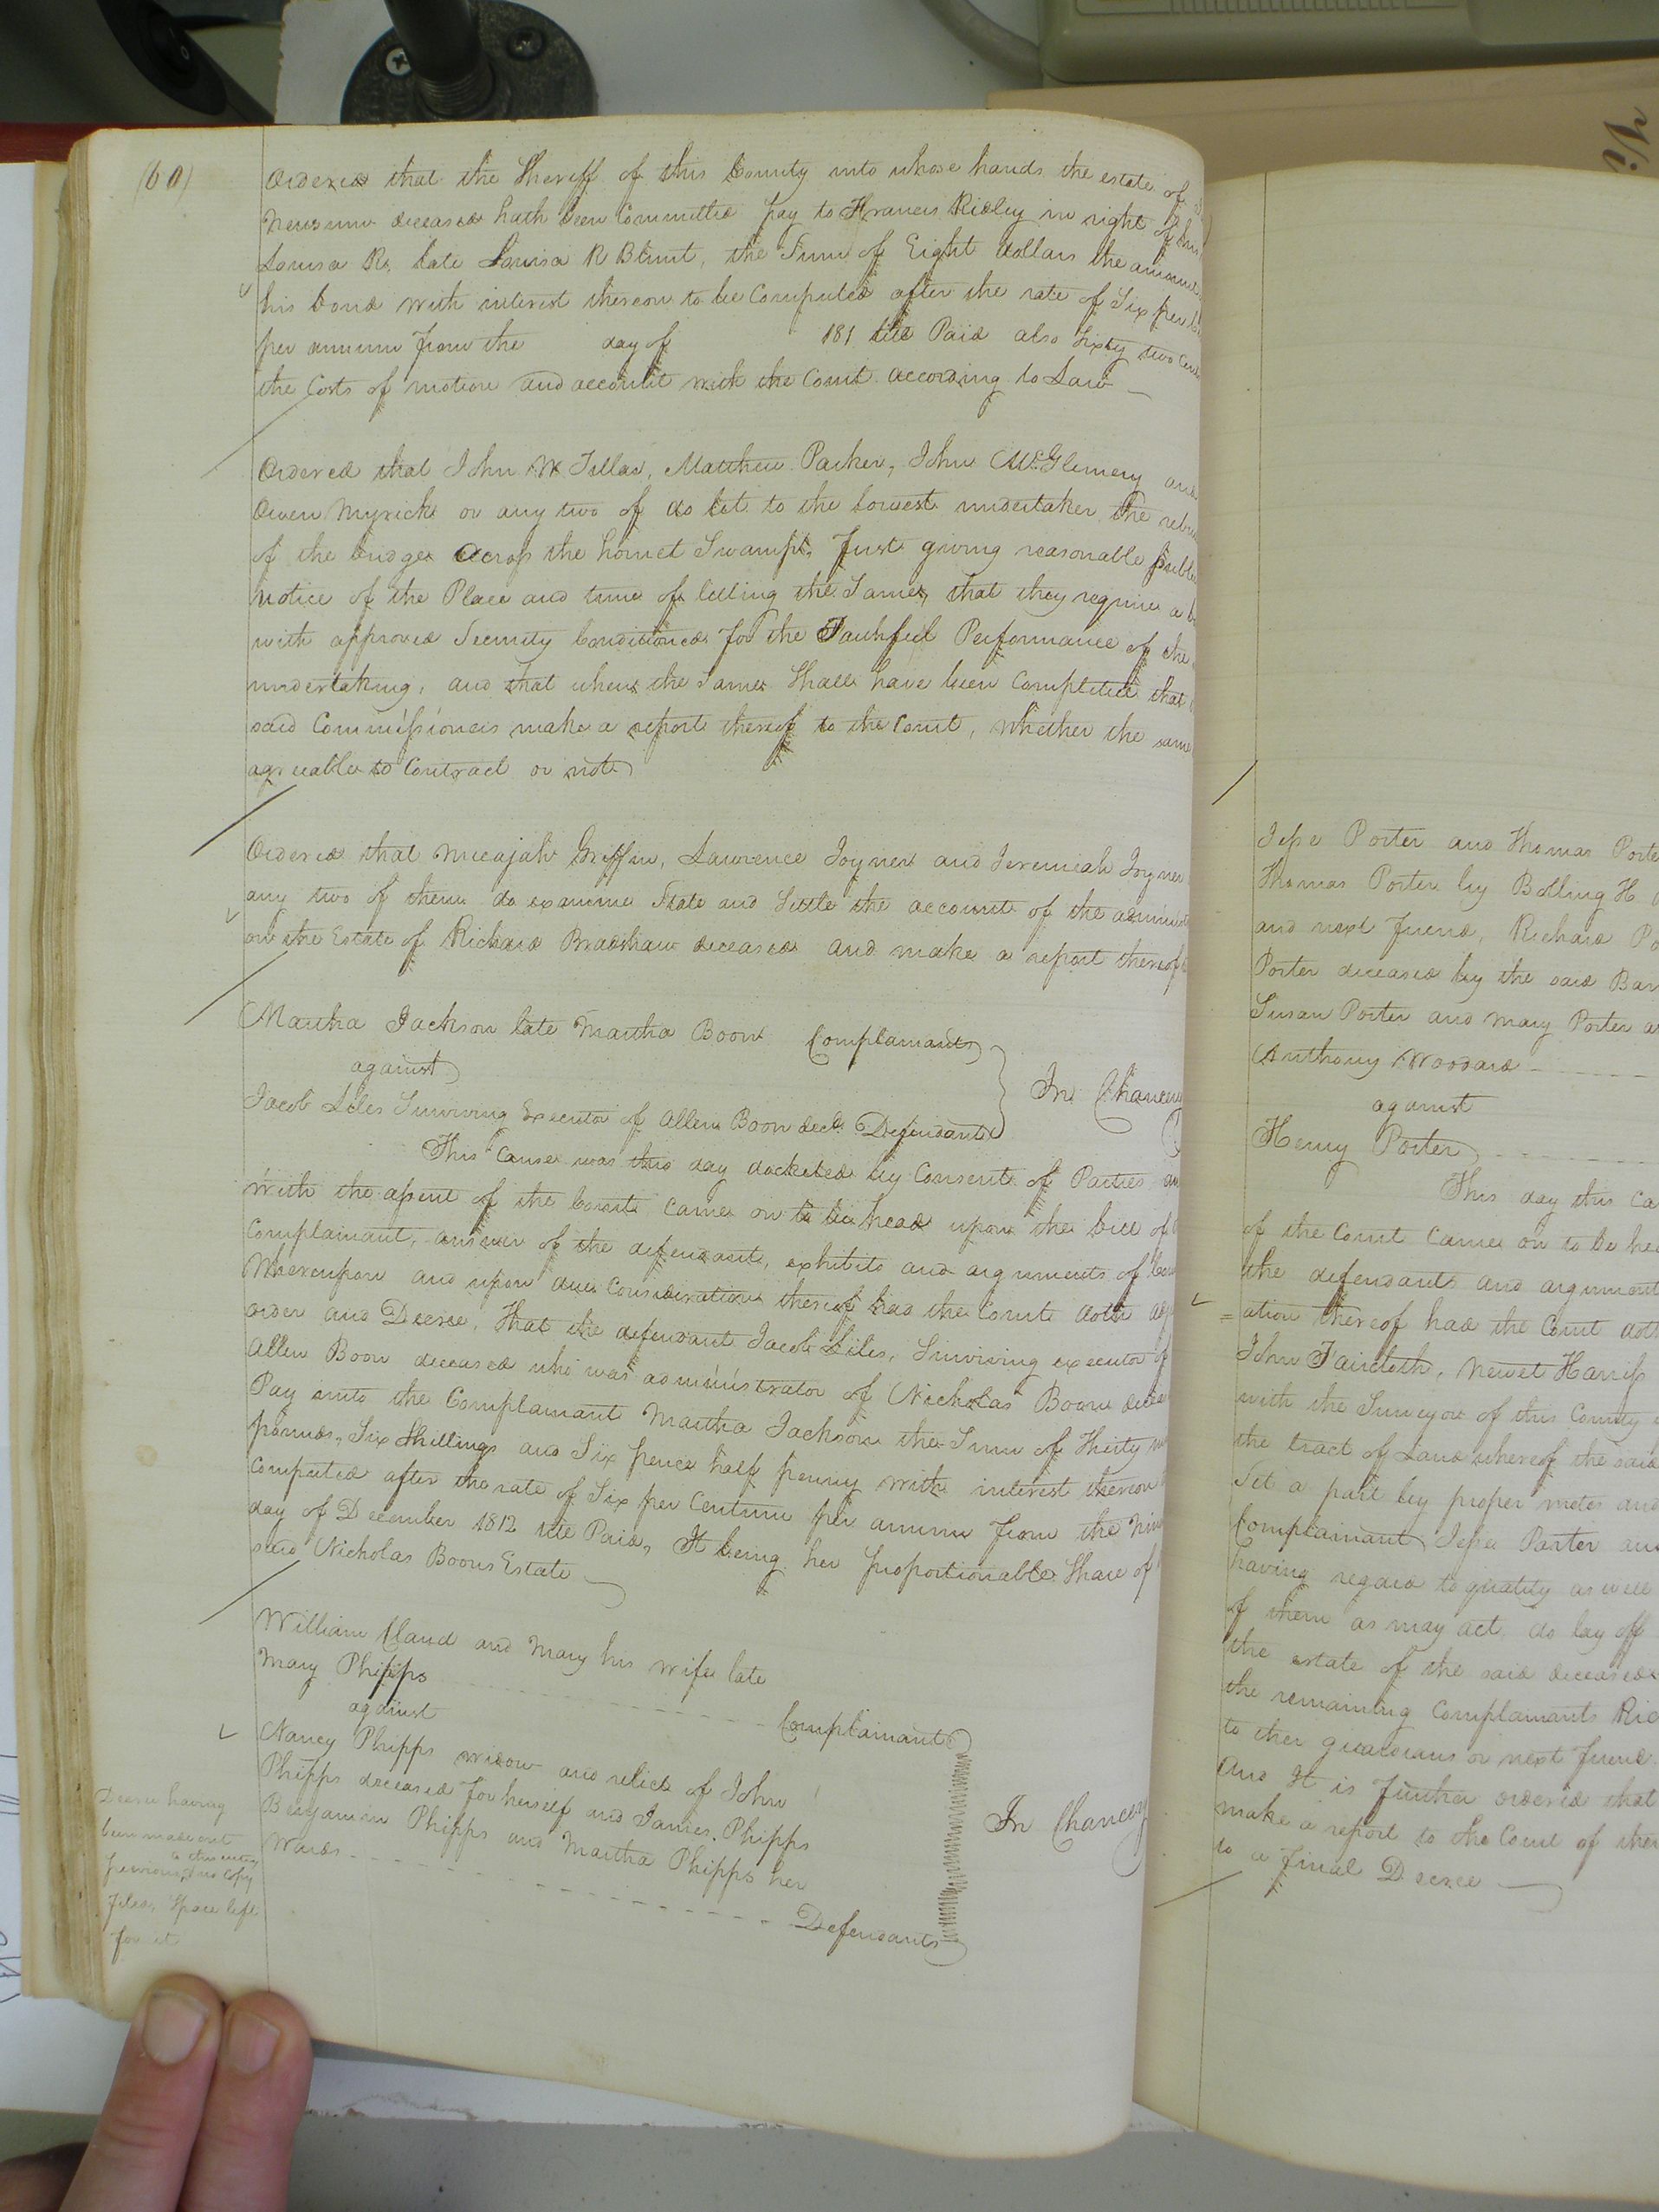 (60)
Ordered that the Sheriff of this County into whose hands the estate of
Newsum deceased hath been Committed pay to Francis Ridley in right of his
Louisa R. late Louisa R Blunt, the Sum of Eight dollars the amount
his bond with interest thereon to be Computed after the rate of Six per
per annum from the day of 181 till Paid also Sixty two Cents
the Costs of motion and account with the Court according to Law
Ordered that John W Tillar, Matthew Parker, John McGlemery and
Owen Myrick or any two of do let to the lowest undertaker the
of the bridge Across the hornet Swamp, Just giving reasonable
notice of the Place and time of letting the Same, that they require a
with approved Security Conditioned for the Faithful Performance of the
undertaking, and that when the Same Shall have been Completed that
said Commissioners make a report thereof to the Court, whether the same
agreeable to Contract or not
Ordered that Micajah Griffin, Lawrence Joyner and Jeremiah Joyner
any two of them do examine State and Settle the account of the
on the Estate of Richard Bradshaw deceased and make a report thereof
Martha Jackson late Martha Boon Complainant
against
In Chancery
Jacob Liles Surviving Executor of Allen Boon decd. Defendant
This Cause was this day docketed by Consent of Parties
with the assent of the Court came on to be head upon the bill of
Complainant, answer of the defendant, exhibits and arguments of
Whereupon and upon due Consideration thereof had the Court doth
order and Decree, that the defendant Jacob Liles, Surviving executor of
Allen Boon deceased who was administrator of Nicholas Boon
Pay unto the Complainant Martha Jackson the Sum of Thirty
pounds, Six Shillings and Six pence half penny with interest thereon
Computed after the rate of Six per Centum per annum from the
day of December 1812 till Paid, It being her proportionable Share of
said Nicholas Boons Estate
William Claud and Mary his wife late
Mary Phipps Complainants
against
In Chancery
Nancy Phipps widow and relict of John
Phipps deceased for herself and James Phipps
Benjamin Phipps and Martha Phipps her
Wards Defendants
Decree having
been made out
to this entry
previous, & no Copy
files, Space left
for it
Jesse Porter and Thomas
Thomas Porter by Bolling H.
and next friend, Richard
Porter deceased by the said
Susan Porter and Mary Porter
Anthony Woodard
against
Henry Porter
This day this
of the Court came on to be
the defendant and argument
ation thereof had the Court doth
John Faircloth, Newet Harris
with the Surveyor of this County
the tract of Land whereof the said
Set a part by proper metes and
Complainant Jesse Porter
having regard to quality as well
of them as may act do lay off
the estate of the said deceased
the remaining Complainants
to their guardians or next friend
And It is further ordered that
make a report to the Court of their
to a final Decree